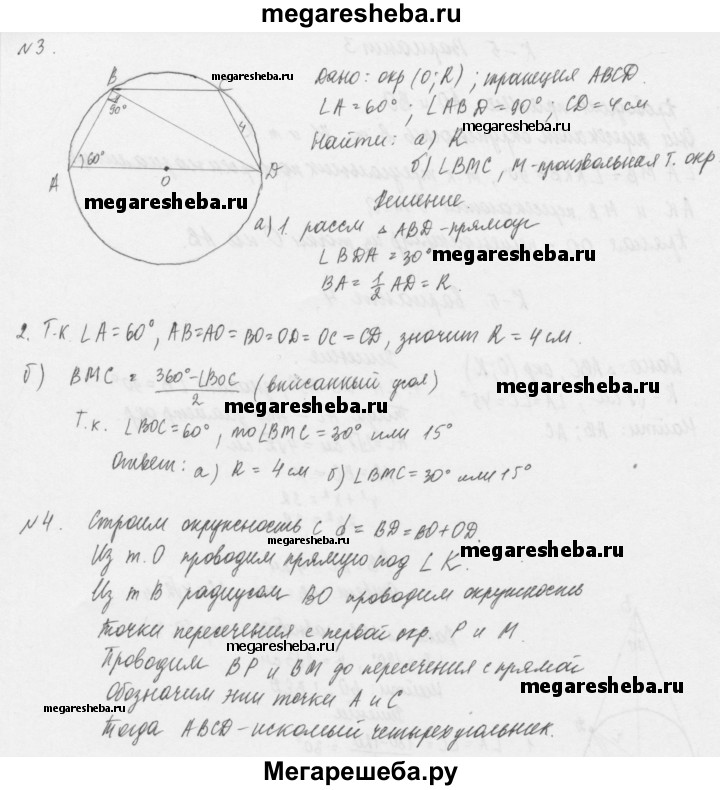 megaresheba.ru
№3.
Дано: окр (O; R) ; трапеция ABCD.
∠A = 60°; ∠ABD = 90°, CD = 4 см
Найти: а) R
б) ∠BMC, M - произвольная т. окр
Решение
B
megaresheba.ru
90°
4
60°
A
O
D
megaresheba.ru
megaresheba.ru
megaresheba.ru
а) 1. рассм △ ABD - прямоуг
∠BDA = 30°
BA = 1/2 AD = R.
megaresheba.ru
2. Т.к. ∠A = 60°, AB = AO = BO = OD = OC = CD, значит R = 4 см.
б) BMC = (360° - ∠BOC)/2 (вписанный угол)
megaresheba.ru
megaresheba.ru
Т.к. ∠BOC = 60°, то ∠BMC = 30° или 15°
Ответ: а) R = 4 см б) ∠BMC = 30° или 15°
megaresheba.ru
№4. Строим окружность с d = BD = BO + OD.
Из т. O проводим прямую под ∠K.
megaresheba.ru
Из т B радиусом BO проводим окружность
Точки пересечения с первой окр. P и M.
megaresheba.ru
Проводим BP и BM до пересечения с прямой
megaresheba.ru
Обозначим эти точки A и C
megaresheba.ru
Тогда ABCD - искомый четырехугольник.
megaresheba.ru
Мегарешеба.ру